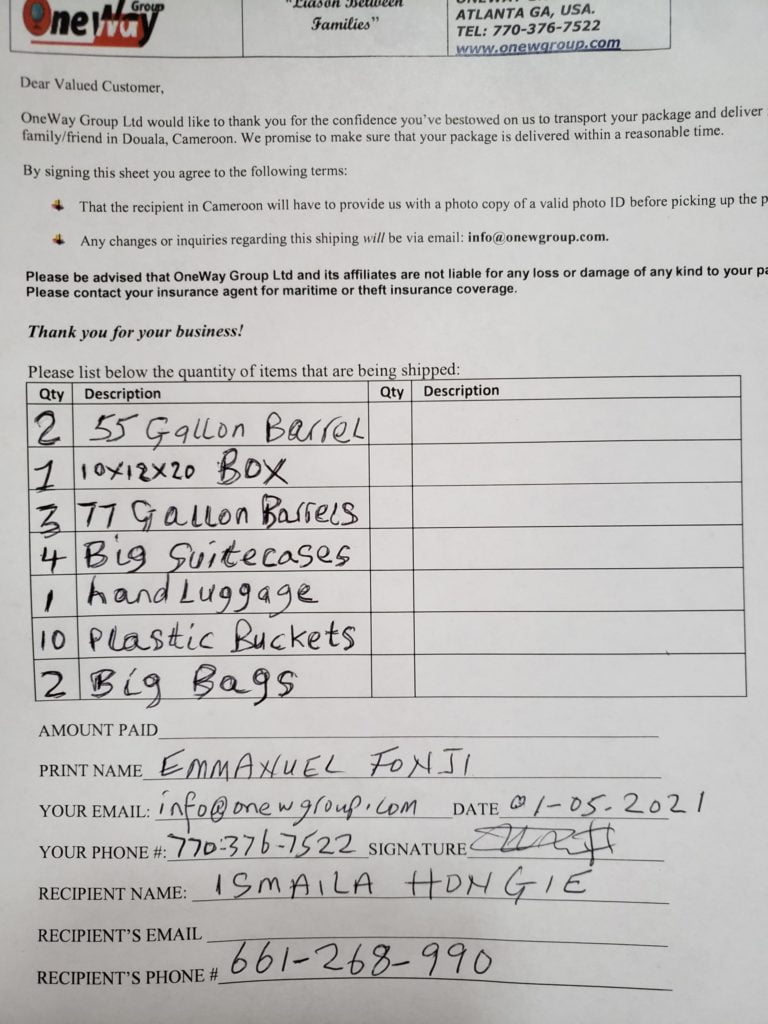 OneWay Group
"Liason Between
Families"
ATLANTA GA, USA.
TEL: 770-376-7522
www.onewgroup.com
Dear Valued Customer,
OneWay Group Ltd would like to thank you for the confidence you've bestowed on us to transport your package and deliver
family/friend in Douala, Cameroon. We promise to make sure that your package is delivered within a reasonable time.
By signing this sheet you agree to the following terms:
That the recipient in Cameroon will have to provide us with a photo copy of a valid photo ID before picking up the
Any changes or inquiries regarding this shiping will be via email: info@onewgroup.com.
Please be advised that OneWay Group Ltd and its affiliates are not liable for any loss or damage of any kind to your
Please contact your insurance agent for maritime or theft insurance coverage.
Thank you for your business!
Please list below the quantity of items that are being shipped:
Qty Description Qty Description
2 55 Gallon Barrel
1 10X12X20 BOX
3 77 Gallon Barrels
4 Big Suitecases
1 hand Luggage
10 Plastic Buckets
2 Big Bags
AMOUNT PAID
PRINT NAME EMMANUEL FONJI
YOUR EMAIL: info@onewgroup.com DATE 01-05-2021
YOUR PHONE #: 770-376-7522 SIGNATURE
RECIPIENT NAME: ISMAILA HONGIE
RECIPIENT'S EMAIL
RECIPIENT'S PHONE # 661-268-990